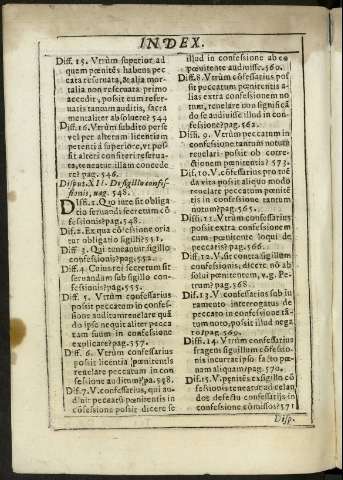 INDEX.
Diff. 15. Vtrùm superior ad
quem pœnitẽs habens pec
cata reseruata, & alia mor-
talia non reseruata primo
accedit, possit eum reser-
uatis tantum auditis, sacra
mentaliter absoluere? 544
Diff. 16. Vtrùm subdito per se
vel per alterum licentiam
petenti à superiore, vt pos-
sit alteri confiteri reserua-
ta, teneatur illam concede
re? pag. 546.
Disput. XII. De sigillo confes-
sionis, pag. 548.
Diff. 1. Quo iure sit obliga
tio seruandi secretum cõ
fessionis? pag. 548.
Diff. 2. Ex qua cõfessione oria
tur obligatio sigilli? 551,
Diff 3. Qui teneatur sigillo
confessionis? pag. 552.
Diff. 4. Cuius rei secretum sit
seruandum sub sigillo con-
fessionis? pag. 555.
Diff. 5. Vtrùm confessarius
possit peccatum in confes-
sione auditum reuelare quã
do ipse nequit aliter pecca
tum suum in confessione
explicare? pag. 557.
Diff. 6. Vtrùm confessarius
possit licentia pœnitentis
reuelare peccatum in con
fessione auditum? pa. 558.
Diff. 7. V. confessarius, qui au-
diuit peccatũ pœnitentis in
cõfessione possit dicere se
illud in confessione ab eo
pœnitente audiuisse. 560.
Diff. 8. Vtrùm cõfessarius pos
sit peccatum pœnitentis a-
lias extra confessionem no
tum, reuelare non significã
do se audiuisse illud in con
fessione? pag. 562.
Diff. 9. Vtrùm peccatum in
confessione tantum notum
reuelari possit ob corre-
ctionem pœnitentis? 573.
Dif. 10. V. cõfessarius pro tuẽ
da vita possit aliquo modo
reuelare peccatum pœni-
tentis in confessione tantum
notum? pag. 565.
Diff. 11. Vtrùm confessarius
possit extra confessionem
cum pœnitente loqui de
peccatis? pag. 566.
Diff. 12. V. sit contra sigillum
confessionis, dicere, nõ ab
solui pœnitentem, e. g. Pe-
trum? pag. 568.
Diff. 13. V. confessarius sub iu
ramento interrogatus de
peccato in confessione tã-
tum noto, possit illud nega
re? pag. 569.
Diff. 14. Vtrùm confessarius
frangens sigillum cõfessio-
nis incurrat ipso facto pœ-
nam aliquam? pag. 570.
Diff. 15. V. pœnitens ex sigillo cõ
fessionis teneatur ad celan
dos defectus confessarij in
confessione cõmissos? 571
Disp.